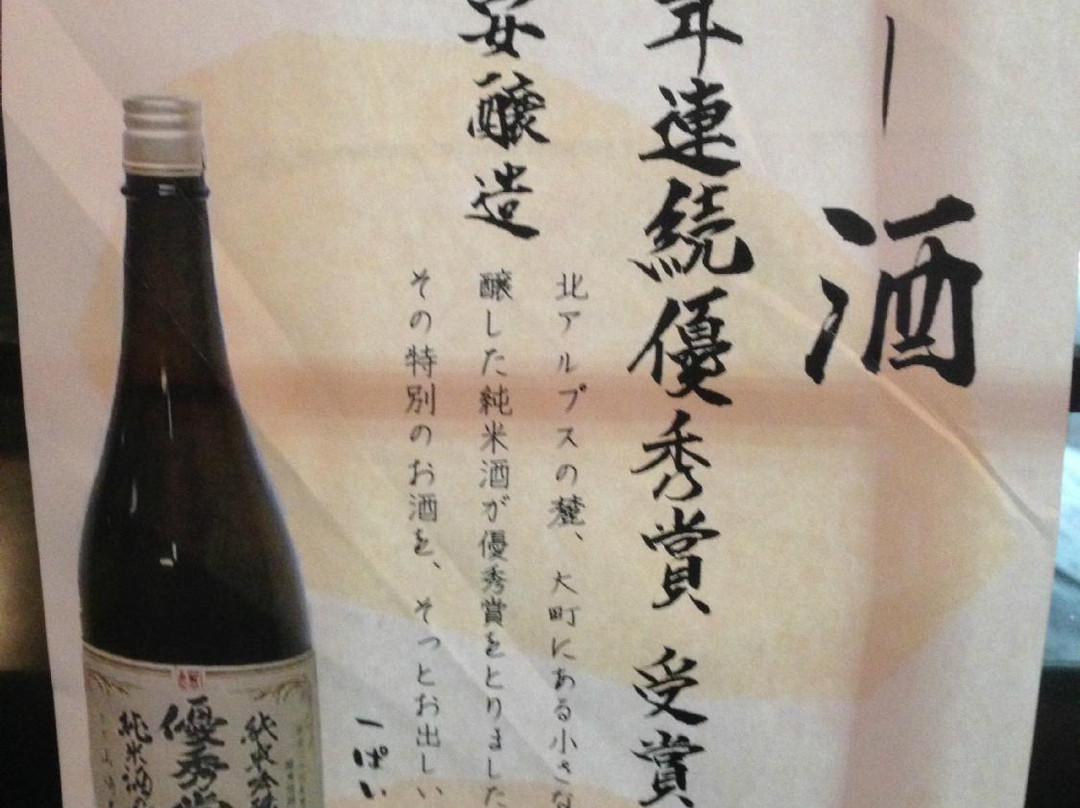 ー酒
年連続優秀賞 受賞
安醸造
北アルプスの麓、大町にある小さな
醸した純米酒が優秀賞をとりました
その特別のお酒を、そっとお出しい
一ぱい
純米吟醸
優秀賞
純米酒の